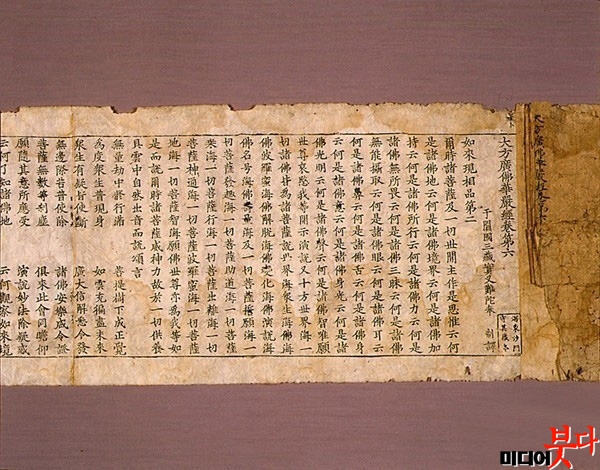 大方廣佛華嚴經卷第六
于闐國三藏實叉難陀奉 制譯
如來現相品第二
爾時諸菩薩及一切世間主作是思惟云何
是諸佛地云何是諸佛境界云何是諸佛加
持云何是諸佛所行云何是諸佛力云何是
諸佛無所畏云何是諸佛三昧云何是諸佛
無能攝取云何是諸佛眼云何是諸佛耳云
何是諸佛鼻云何是諸佛舌云何是諸佛身
云何是諸佛意云何是諸佛身光云何是諸
佛光明云何是諸佛聲云何是諸佛智唯願
世尊哀愍我等開示演說又十方世界海
切諸佛皆爲諸菩薩說世界海衆生海
佛波羅蜜海佛解脫海佛變化海佛演說海
佛名号海佛壽量海及一切菩薩誓願海一
切菩薩發趣海一切菩薩助道海一切菩薩
乘海一切菩薩行海一切菩薩出離海一切
菩薩神通海一切菩薩波羅蜜海一切菩薩
地海一切菩薩智海願佛世尊亦爲我等如
是而說爾時諸菩薩威神力故於一切供養
具雲中自然出音而說頌言
無量劫中修行滿 菩提樹下成正覺
爲度衆生普現身 如雲充徧盡未來
衆生有疑皆使斷 廣大信解悉令發
無邊際苦普使除 諸佛安樂咸令證
菩薩無數等刹塵 俱來此會同瞻仰
願隨其意所應受 演說妙法除疑惑
云何了知諸佛地 云何觀察如來境
미디어붓다